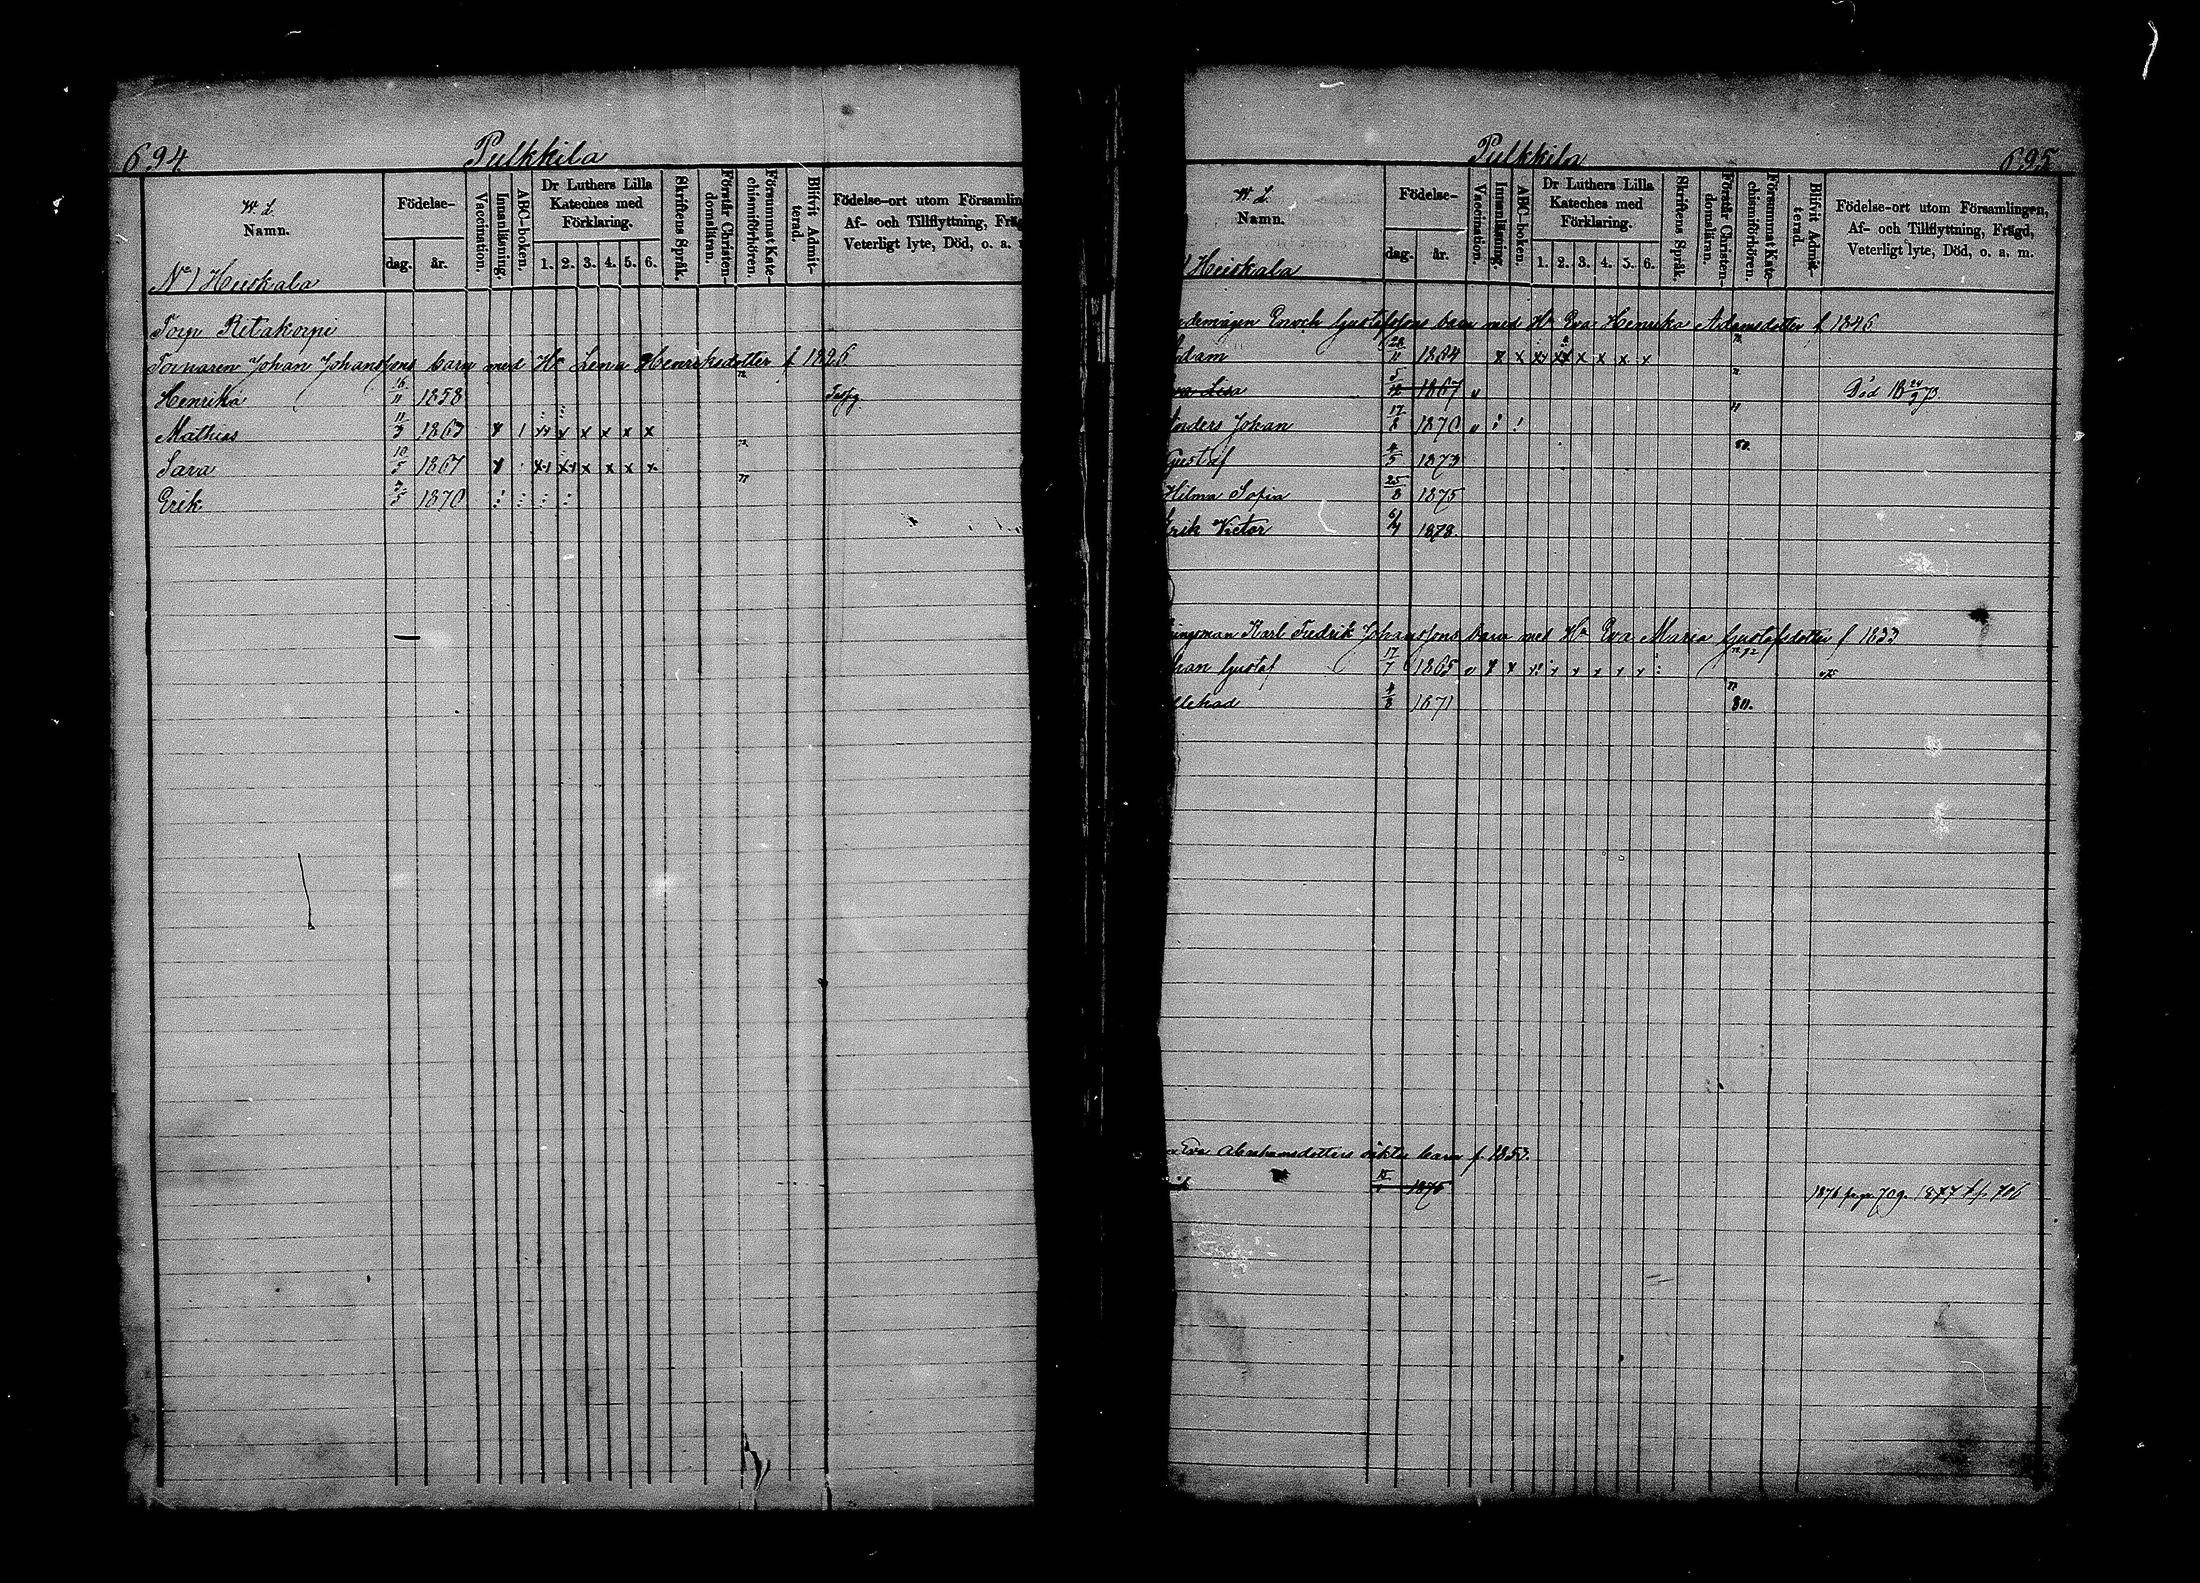 694
Pulkkila
W. L.
Namn.
Födelse-
dag.
år.
Vaccination.
Innanläsning.
ABC-boken.
Dr Luthers Lilla
Kateches med
Förklaring.
1. 2. 3. 4. 5. 6.
Skriftens Språk.
Förstår Christen-
domsläran.
Försummat Kate-
chismiförhören.
Blifvit Admit-
terad.
Födelse-ort utom Församlin
Af- och Tillflyttning, Fräg
Veterligt lyte, Död, o. a.
No 1 Heiskala
Torp Ritakorpi
Torparen Johan Johanssons barn med Hu Lena Henriksdotter f 1826
Henrika 16/11 1858
Mathias 11/3 1863 x 1 x x x x x x
Sara 10/5 1867 x x x x x x x
Erik 1870
695
Pulkkila
W. L.
Namn.
Födelse-
dag.
år.
Vaccination.
Innanläsning.
ABC-boken.
Dr Luthers Lilla
Kateches med
Förklaring.
1. 2. 3. 4. 5. 6.
Skriftens Språk.
Förstår Christen-
domsläran.
Försummat Kate-
chismiförhören.
Blifvit Admit-
terad.
Födelse-ort utom Församlingen,
Af- och Tillflyttning, Frägd,
Veterligt lyte, Död, o. a. m.
Heiskala
Enoch Gustafssons barn med Hu Eva Henrika Adamsdotter f 1846
dam 28/11 1864 x x x x x x x x
va Lisa 5/12 1867 v Död 18 24/9 73
nders Johan 17/8 1870 v
Gustaf 4/5 1873 50.
Hilma Sofia 25/8 1875
Erik Victor 6/4 1878.
Karl Fredrik Johanssons barn med Hu Eva Maria Gustafsdotter f 1833
han Gustaf 17/7 1865 v x x
4/8 1871 80.
Eva Abrahamsdotters oäkta barn f. 1850.
1876 1876 pag. 709. 1877 706